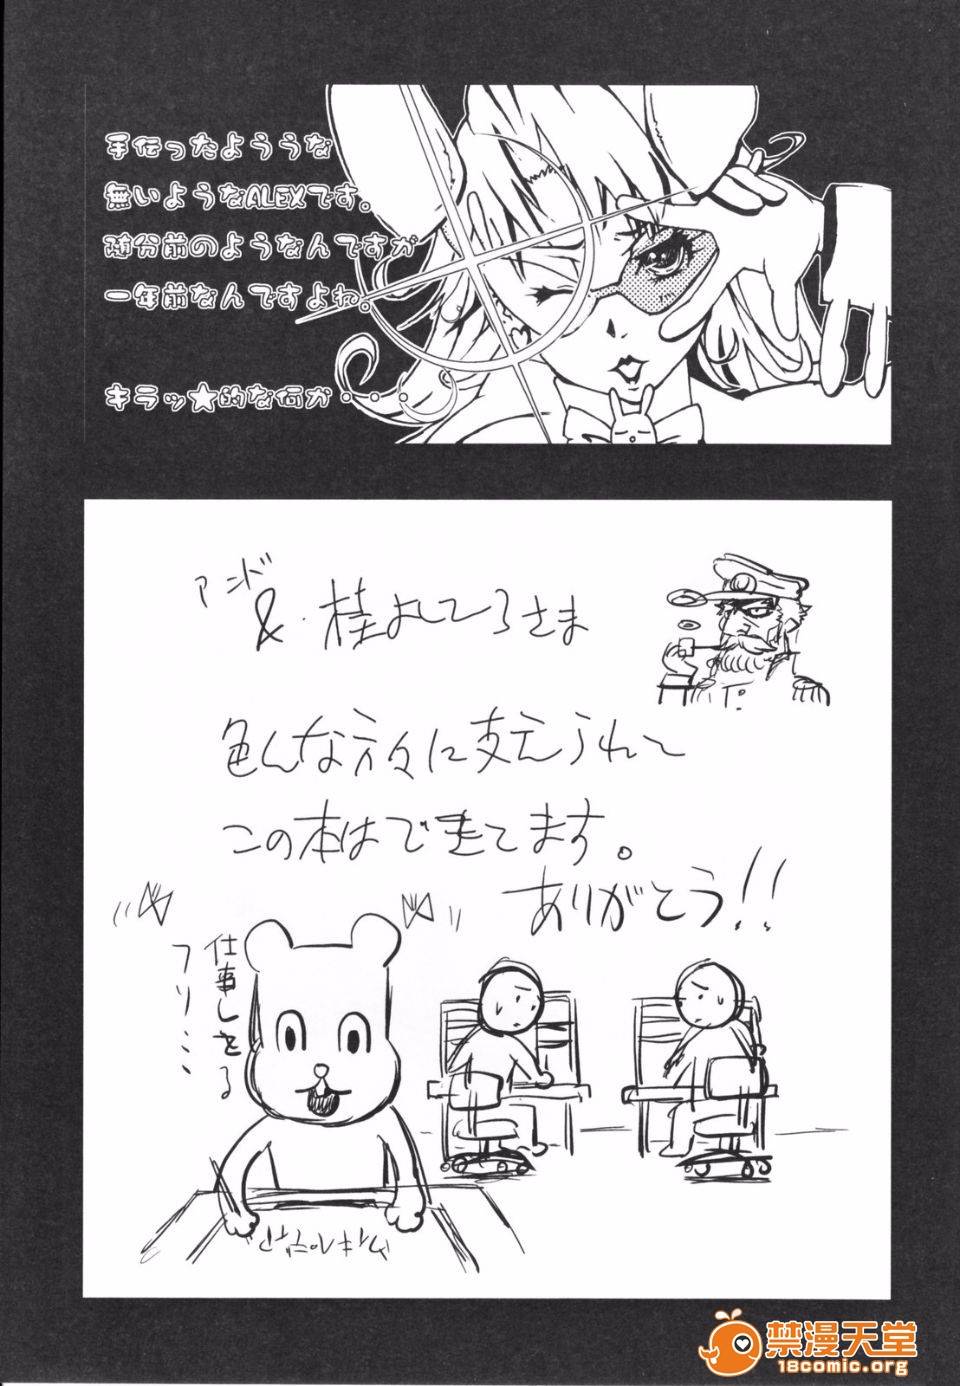 手伝ったよううな
無いようなALEXです。
随分前のようなんですが
一年前なんですよね。
キラッ★的な何か・・・
アンド
&・桂よしひろさま
色んな方々に支えられて
この本はできてます。
ありがとう!!
仕事してる
フリ…
禁漫天堂
18comic.org